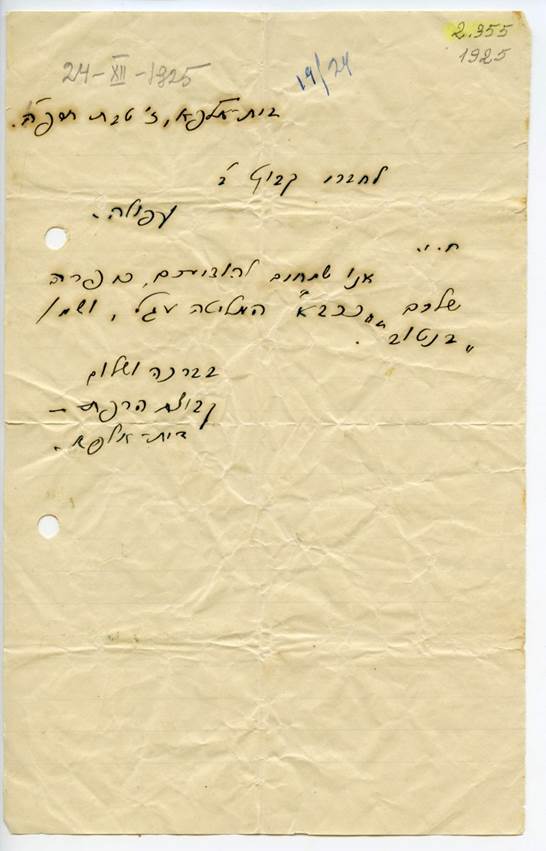 2.955
1925
24-XII-1925
19/24
בית-אלפא, ז' טבת תרפ"ה.
לחברי קבוץ ב'
עפולה.
ח.י.
אנו שמחים להודיעכם, כי הפרה
שלכם המליטה עגל, ושמו
בברכה ושלום
קבוצת הרפת —
בית-אלפא.